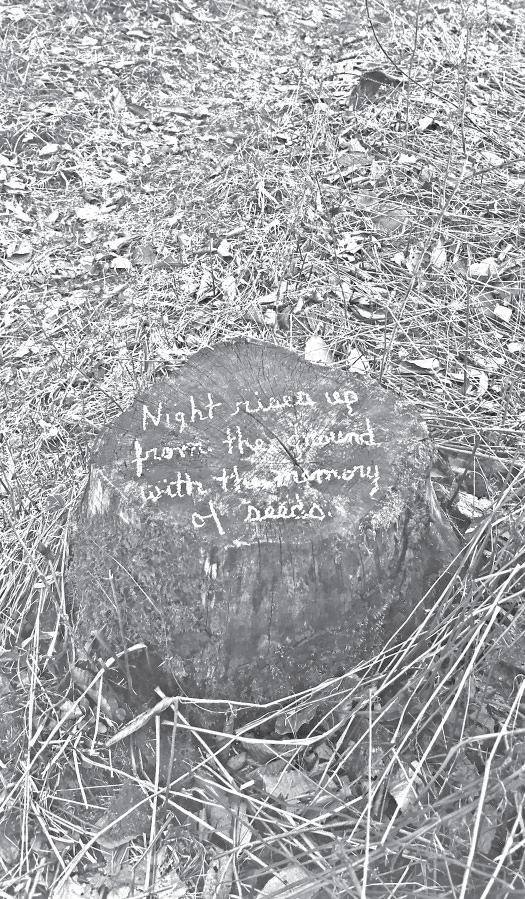 Night rises up
from the ground
with the memory
of seeds.